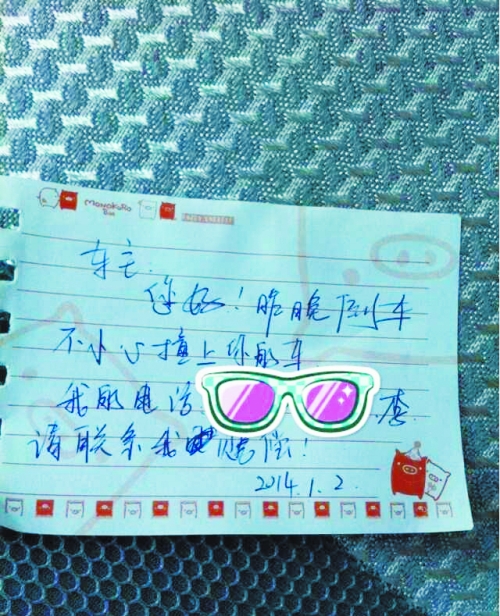 MonoKuRo
Boo
车主:
你好！昨晚倒车
不小心撞上你的车
我的电话 李
请联系我 赔偿！
2014.1.2.